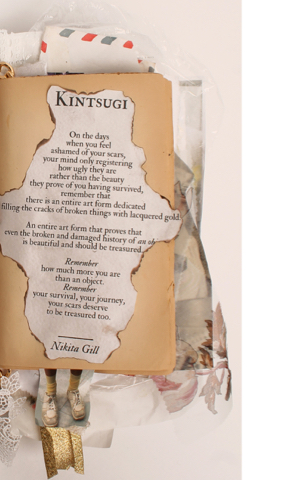 KINTSUGI
On the days
when you feel
ashamed of your scars,
your mind only registering
how ugly they are
rather than the beauty
they prove of you having survived,
remember that
there is an entire art form dedicated
filling the cracks of broken things with lacquered gold.
An entire art form that proves that
even the broken and damaged history of an
is beautiful and should be treasured.
Remember
how much more you are
than an object.
Remember
your survival, your journey,
your scars deserve
to be treasured too.
Nikita Gill